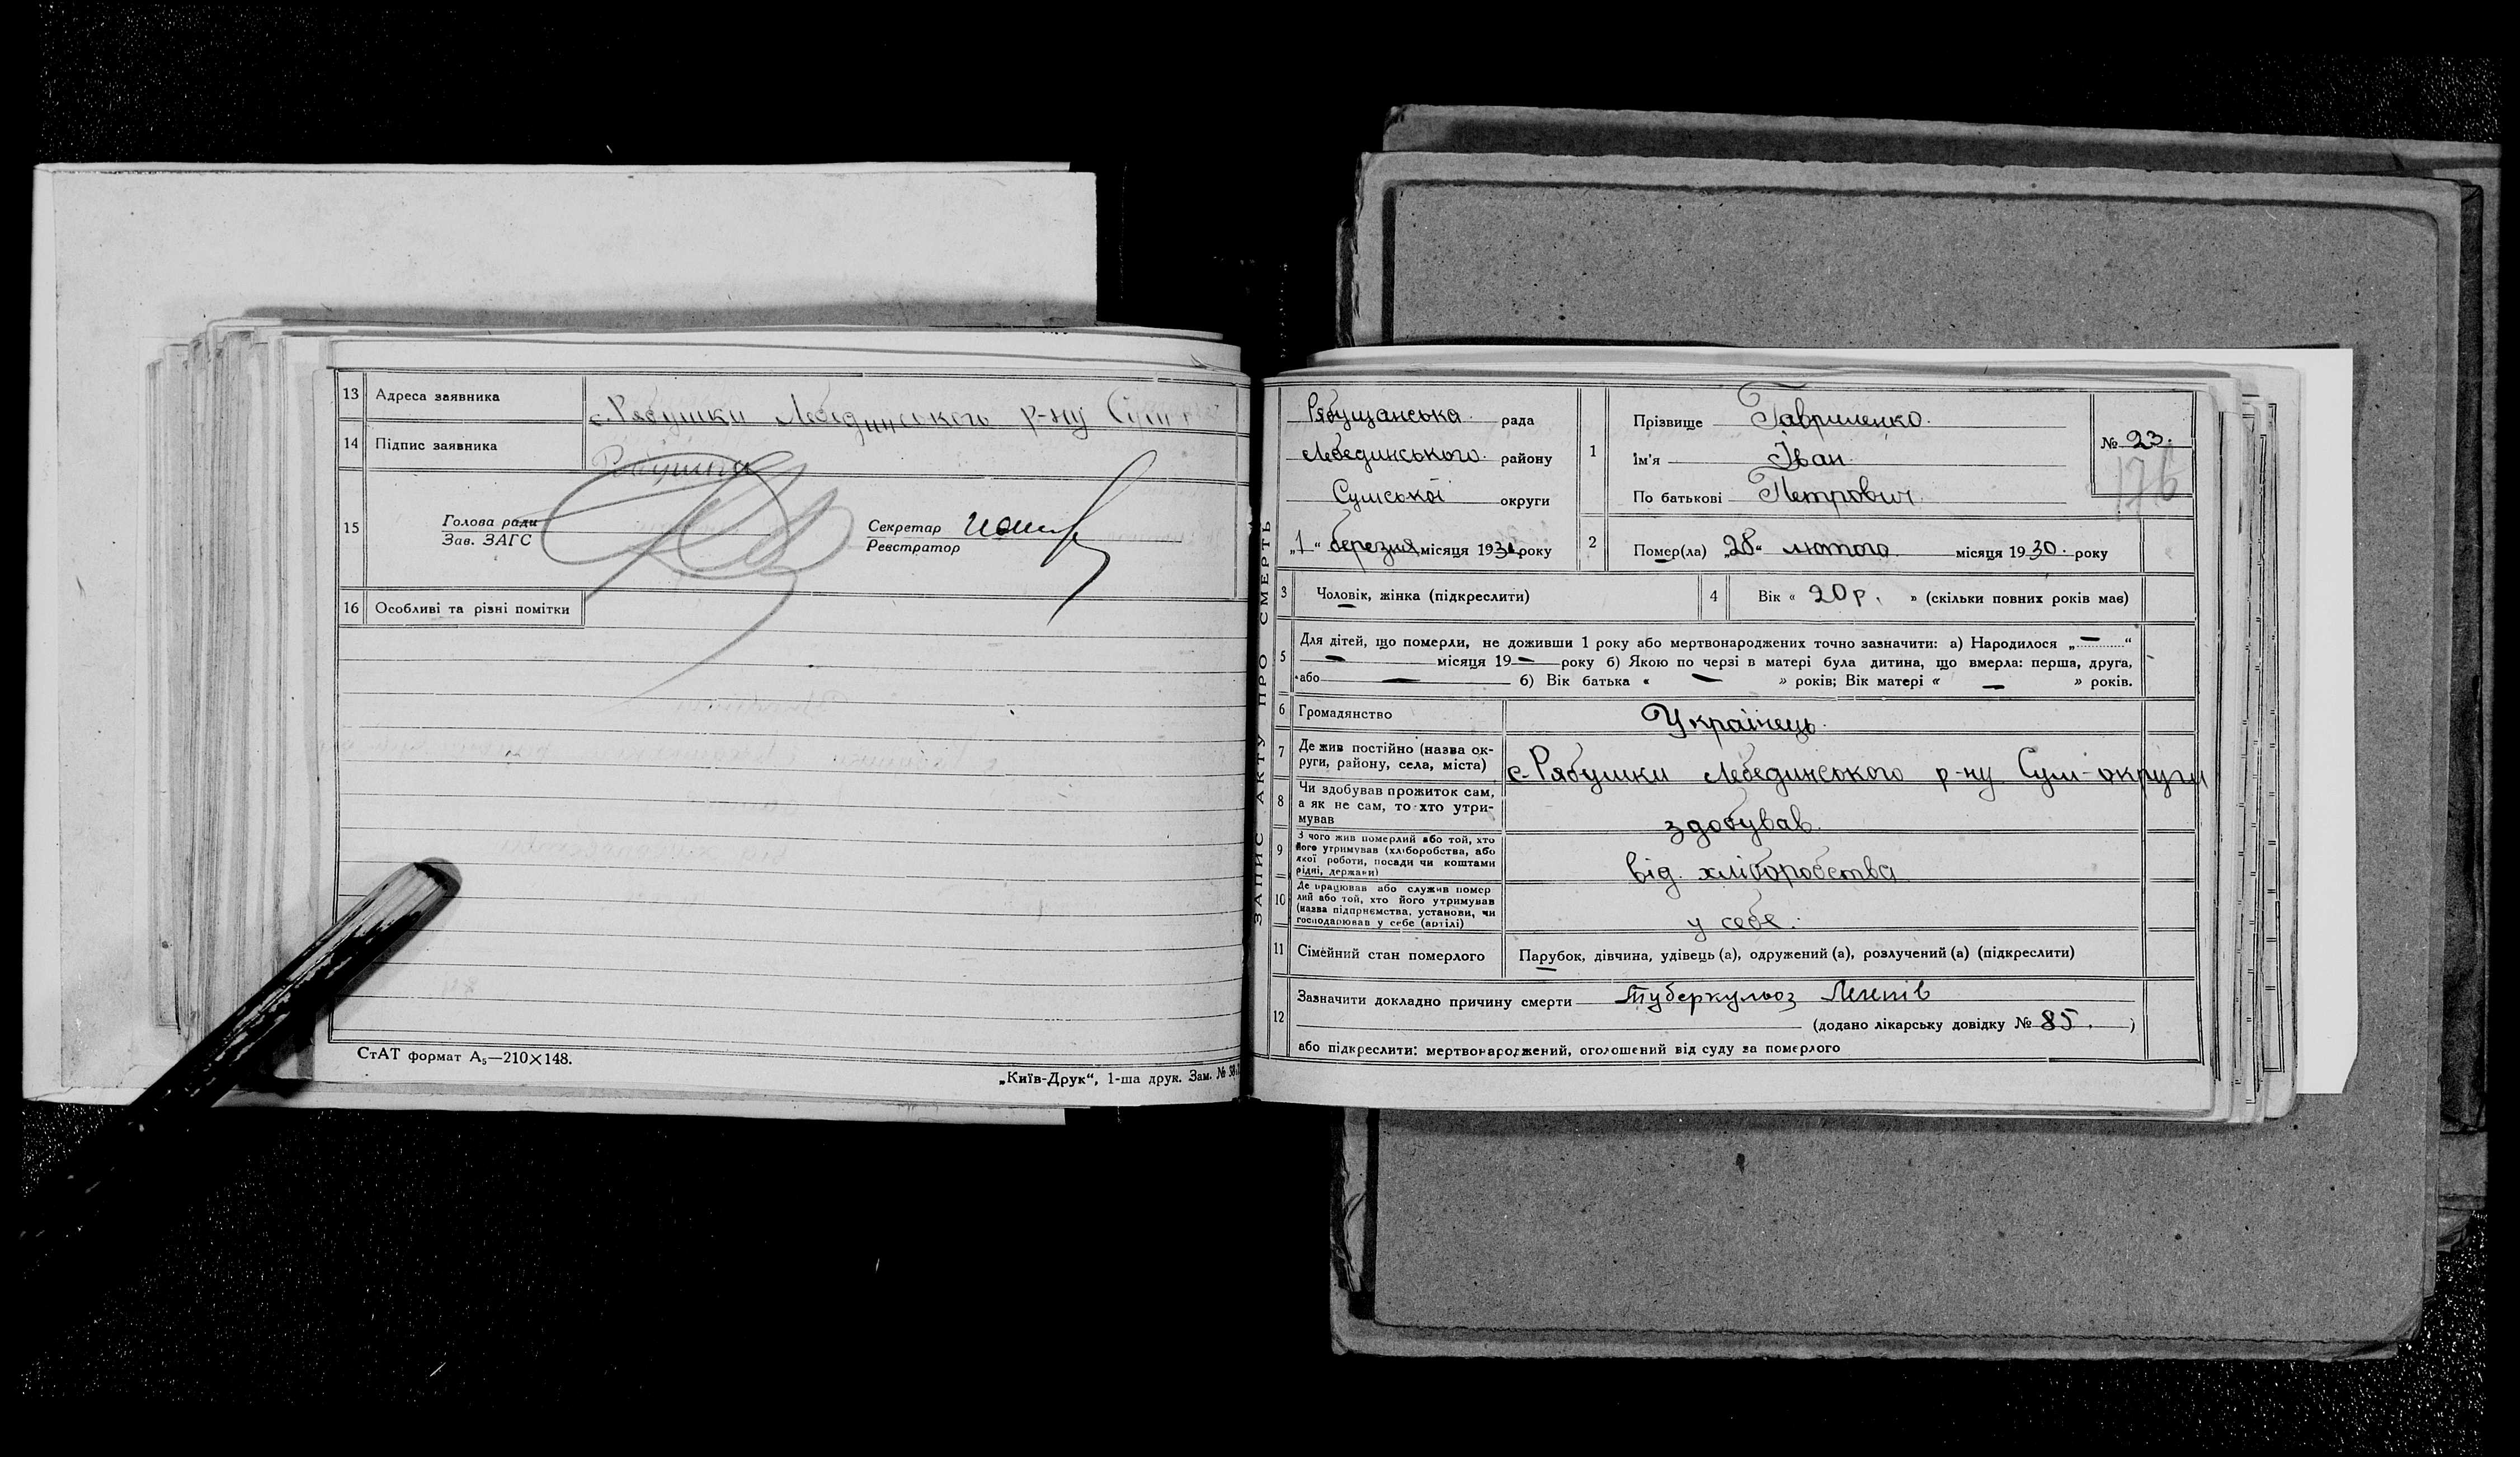 13 Адреса заявника с. Рябушки Лебединського р-ну Сум
14 Підпис заявника
15 Голова ради Секретар
Зав. ЗАГС Реєстратор
16 Особливі та різні помітки
СтАТ формат А5—210×148.
„Київ-Друк“, 1-ша друк. Зам. №
ЗАПИС АКТУ ПРО СМЕРТЬ
Рябущанська рада
Лебединського району
Сумської округи
„1“ березня місяця 1930 року
1 Прізвище Гавриленко.
Ім'я Іван
По батькові Петрович
№ 23.
176
2 Помер(ла) „28“ лютого місяця 1930. року
3 Чоловік, жінка (підкреслити)
4 Вік « 20 р. » (скільки повних років має)
5 Для дітей, що померли, не доживши 1 року або мертвонароджених точно зазначити: а) Народилося „—“
— місяця 19— року б) Якою по черзі в матері була дитина, що вмерла: перша, друга,
або — б) Вік батька « — » років; Вік матері « — » років.
6 Громадянство Українець.
7 Де жив постійно (назва ок-
руги, району, села, міста) с. Рябушки Лебединського р-ну Сум-округи
8 Чи здобував прожиток сам,
а як не сам, то хто утри-
мував здобував.
9 З чого жив померлий або той, хто
його утримував (хліборобства, або
якої роботи, посади чи коштами
рідні, держави) від хліборобства
10 Де працював або служив помер
лий або той, хто його утримував
(назва підприємства, установи, чи
господарював у себе (артілі) у себе.
11 Сімейний стан померлого Парубок, дівчина, удівець (а), одружений (а), розлучений (а) (підкреслити)
12 Зазначити докладно причину смерти Туберкульоз Легенів
(додано лікарську довідку № 85. )
або підкреслити: мертвонароджений, оголошений від суду за померлого